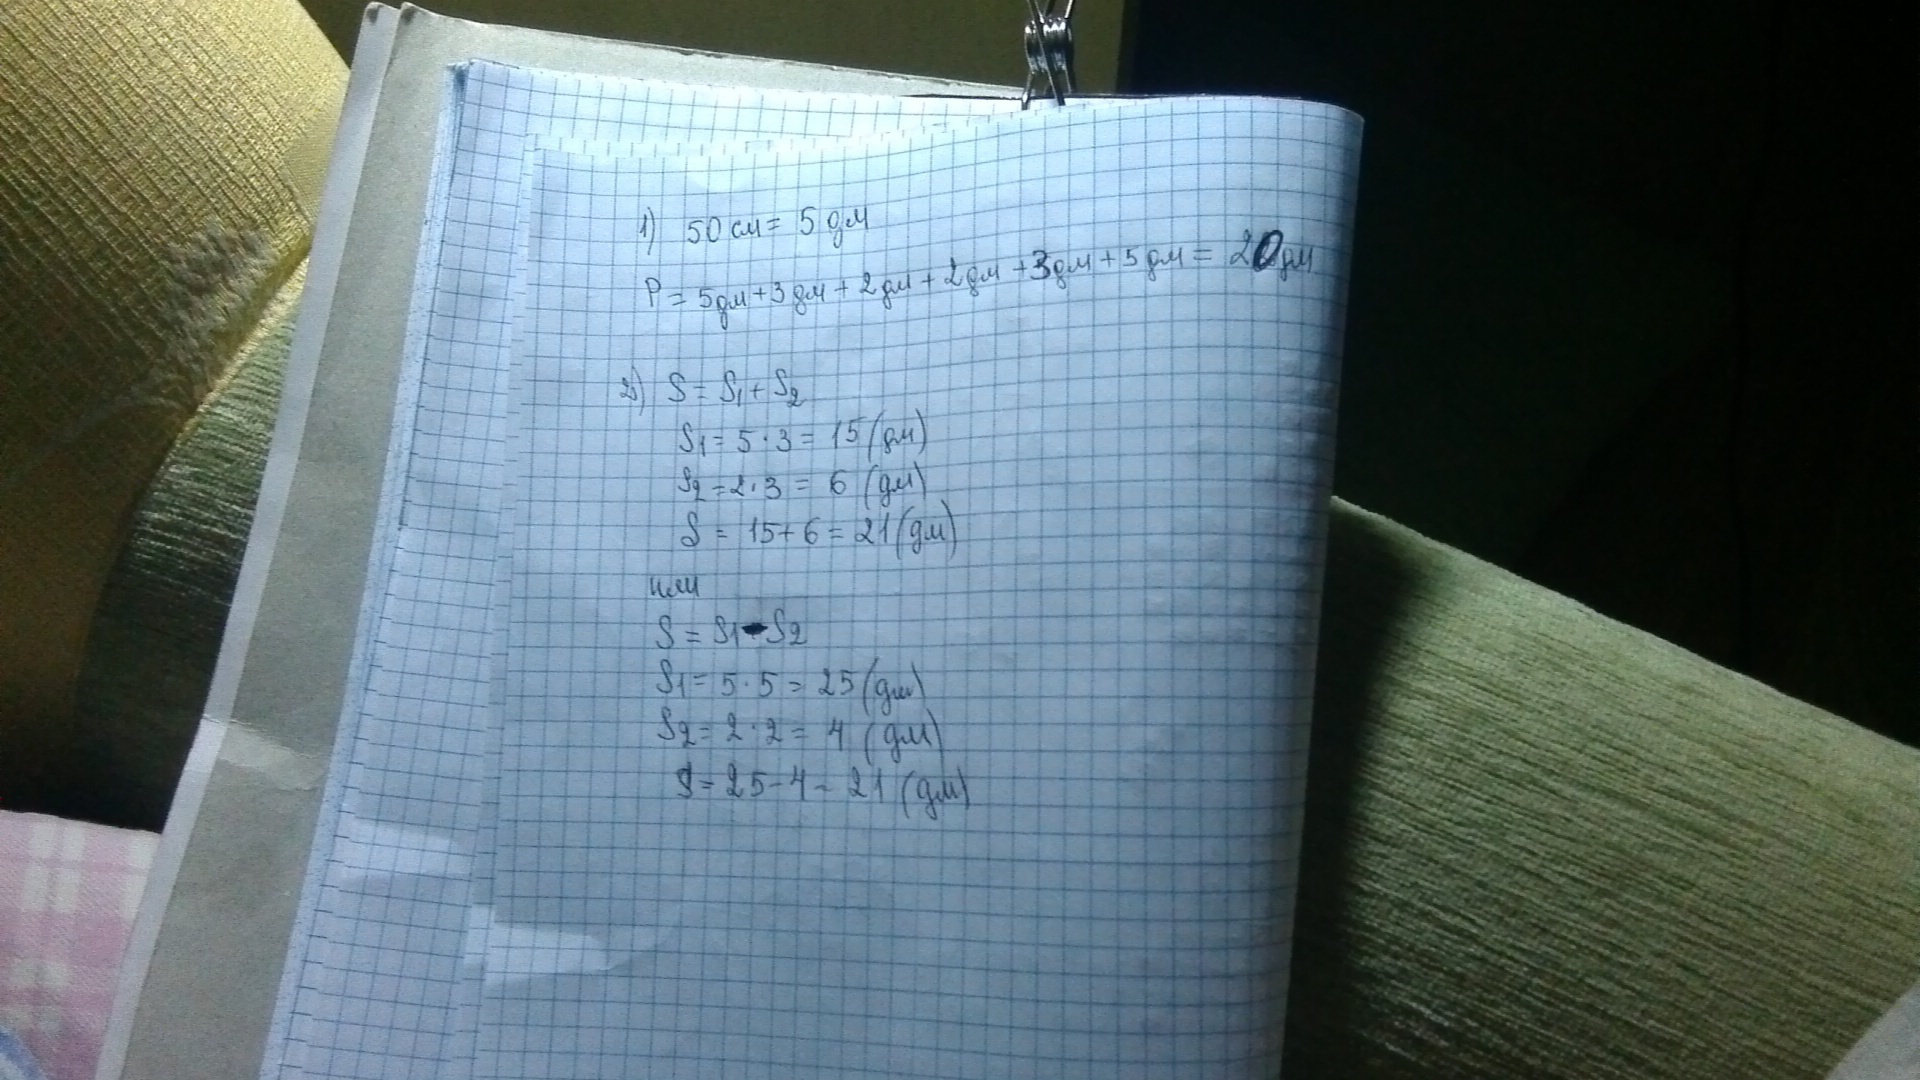 1) 50 см = 5 дм
P = 5дм + 3 дм + 2 дм + 2 дм + 3дм + 5 дм = 20дм
2) S = S₁ + S₂
S₁ = 5 · 3 = 15 (дм)
S₂ = 2 · 3 = 6 (дм)
S = 15 + 6 = 21 (дм)
или
S = S₁ - S₂
S₁ = 5 · 5 = 25 (дм)
S₂ = 2 · 2 = 4 (дм)
S = 25 - 4 = 21 (дм)